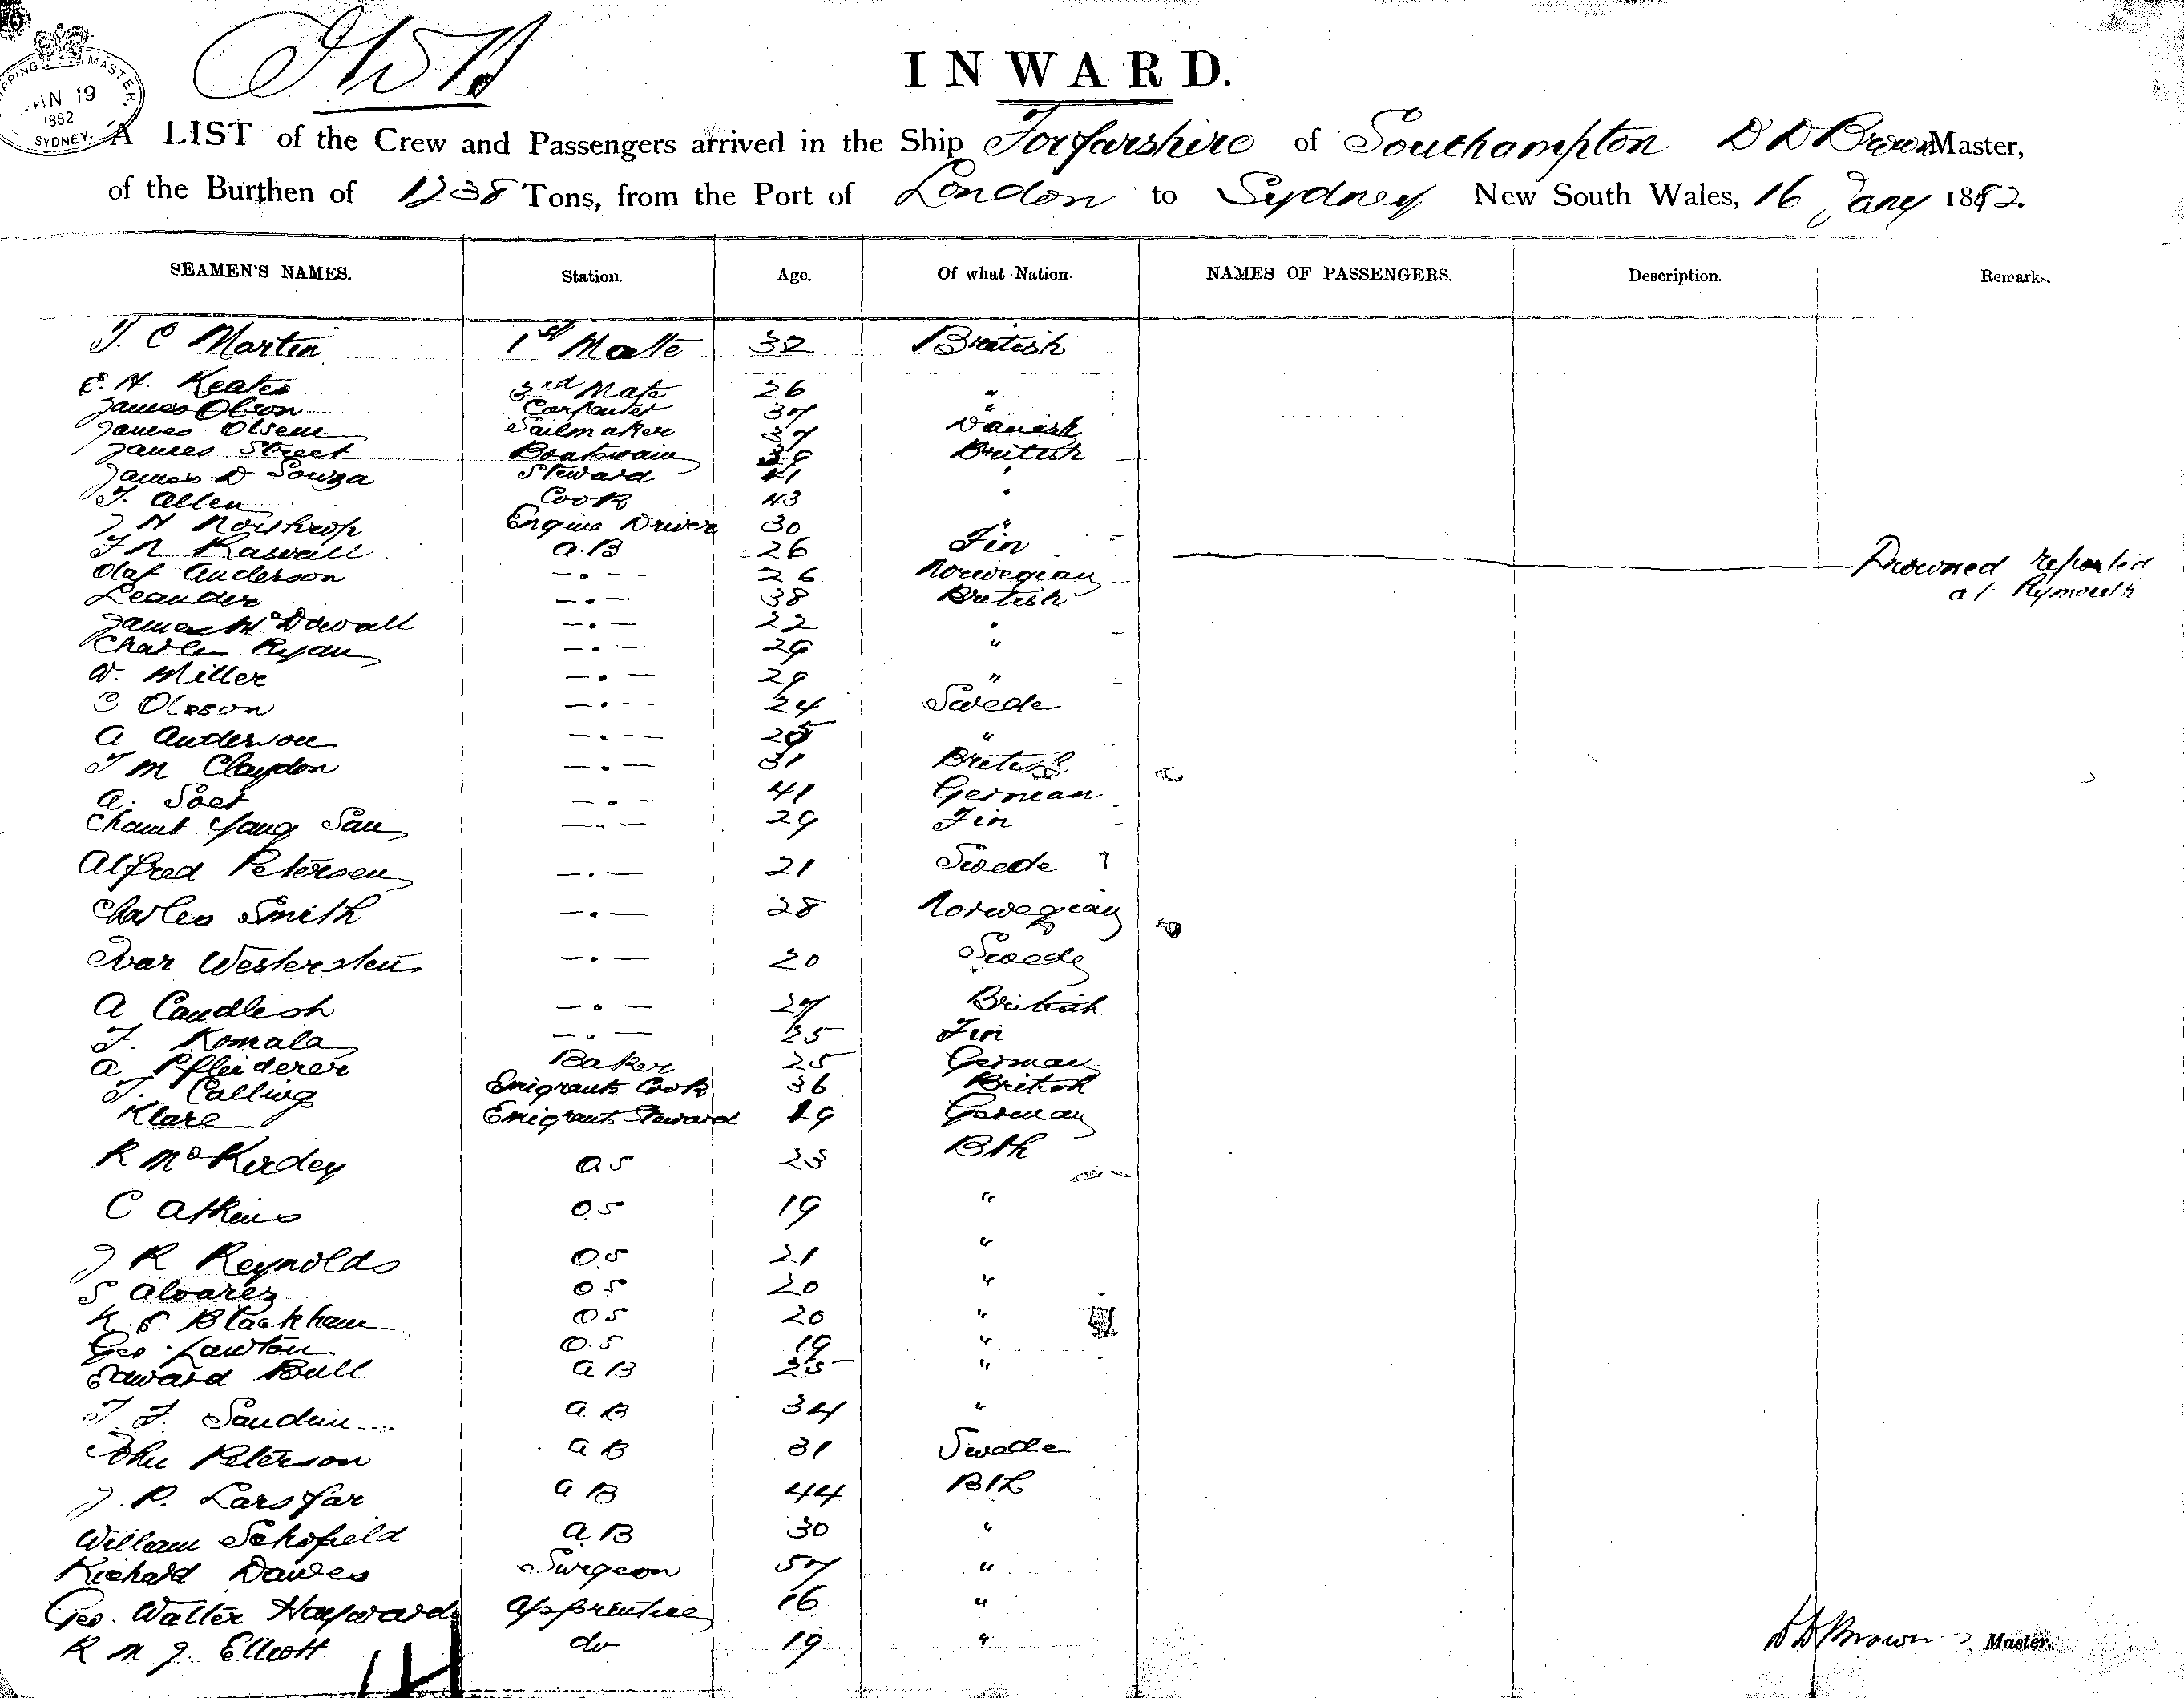 SHIPPING MASTER.
JAN 19
1882
SYDNEY.
INWARD.
A LIST of the Crew and Passengers arrived in the Ship Forfarshire of Southampton D D Brown Master,
of the Burthen of 1238 Tons, from the Port of London to Sydney New South Wales, 16 Jany 1882
SEAMEN'S NAMES. Station. Age. Of what Nation. NAMES OF PASSENGERS. Description. Remarks.
J. C Martin 1st Mate 32 British
E. H. Keates 3rd Mate 26 "
James Olson Carpenter 37 "
James Olsen Sailmaker 37 Danish
James Street Boatswain 39 British
James D Souza Steward 41 "
J. Allen Cook 43 "
J H Northrop Engine Driver 30 "
J N Kasvall A.B 26 Fin Drowned reported
Olaf Anderson — . — 26 Norwegian at Plymouth
Leander — . — 38 British
James McDowall — . — 22 "
Charles Ryan — . — 29 "
W. Miller — . — 29 "
C Olsson — . — 24 Swede
A Anderson — . — 25 "
J M Claydon — . — 31 British
A. Soet — . — 41 German
Yang San — " — 29 Fin
Alfred Petersen — . — 21 Swede
Charles Smith — . — 28 Norwegian
Ivar Westersten — . — 20 Swede
A Candlish — . — 27 British
F. Komala — " — 25 Fin
A Pfleiderer Baker 25 German
J. Calling Emigrants Cook 36 British
Klare Emigrants Steward 19 German
R McKirdey OS 23 Bth
C Atkins OS 19 "
J R Reynolds OS 21 "
S Alvarez OS 20 "
K. S. Blackham OS 20 "
Geo. Lawton O.S 19 "
Edward Bull AB 25 "
J F. Sandin AB 34 "
John Peterson AB 31 Swede
J. P. Larsfar AB 44 Bth
William Schofield A.B 30 "
Richard Dawes Surgeon 57 "
Geo. Walter Hayward Apprentice 16 "
R M J. Elliott do 19 " D D Brown Master.